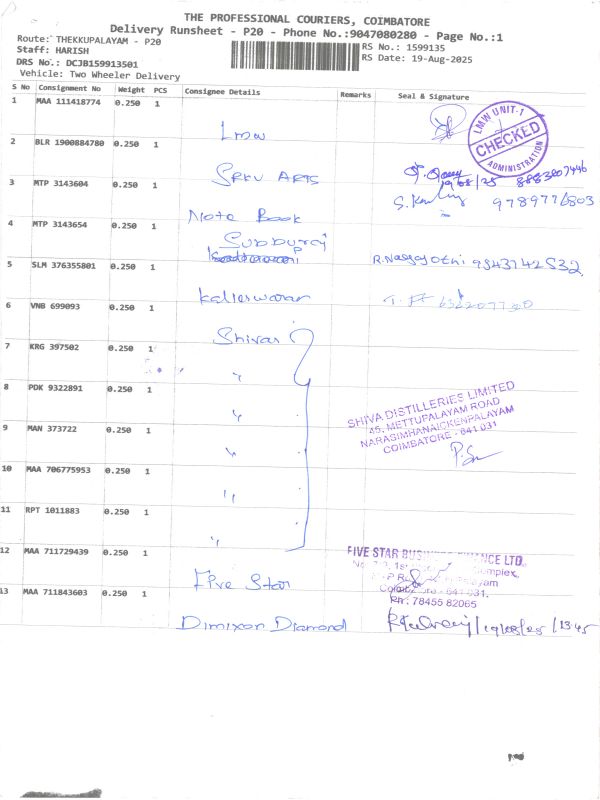 THE PROFESSIONAL COURIERS, COIMBATORE
Delivery Runsheet - P20 - Phone No.:9047080280 - Page No.:1
Route: THEKKUPALAYAM - P20
RS No.: 1599135
Staff: HARISH
RS Date: 19-Aug-2025
DRS No.: DCJB159913501
Vehicle: Two Wheeler Delivery
S No Consignment No Weight PCS Consignee Details Remarks Seal & Signature
1 MAA 111418774 0.250 1
Lmw
LMW UNIT-1
CHECKED
ADMINISTRATION
2 BLR 1900884780 0.250 1
SRKV ARTS
19/08/25
3 MTP 3143604 0.250 1
Note Book
4 MTP 3143654 0.250 1
Subburaj
9343142532
5 SLM 376355801 0.250 1
Kalieswaran
6 VNB 699093 0.250 1
Shivas
7 KRG 397502 0.250 1
"
8 PDK 9322891 0.250 1
"
SHIVA DISTILLERIES LIMITED
45, METTUPALAYAM ROAD
NARASIMHANAICKENPALAYAM
COIMBATORE - 641 031
9 MAN 373722 0.250 1
"
10 MAA 706775953 0.250 1
"
11 RPT 1011883 0.250 1
"
12 MAA 711729439 0.250 1
Five Star
FIVE STAR BUSINESS FINANCE LTD.
Coimbatore - 641 031.
Ph: 78455 82065
13 MAA 711843603 0.250 1
Dimixon Diamond
19/08/25 / 1345